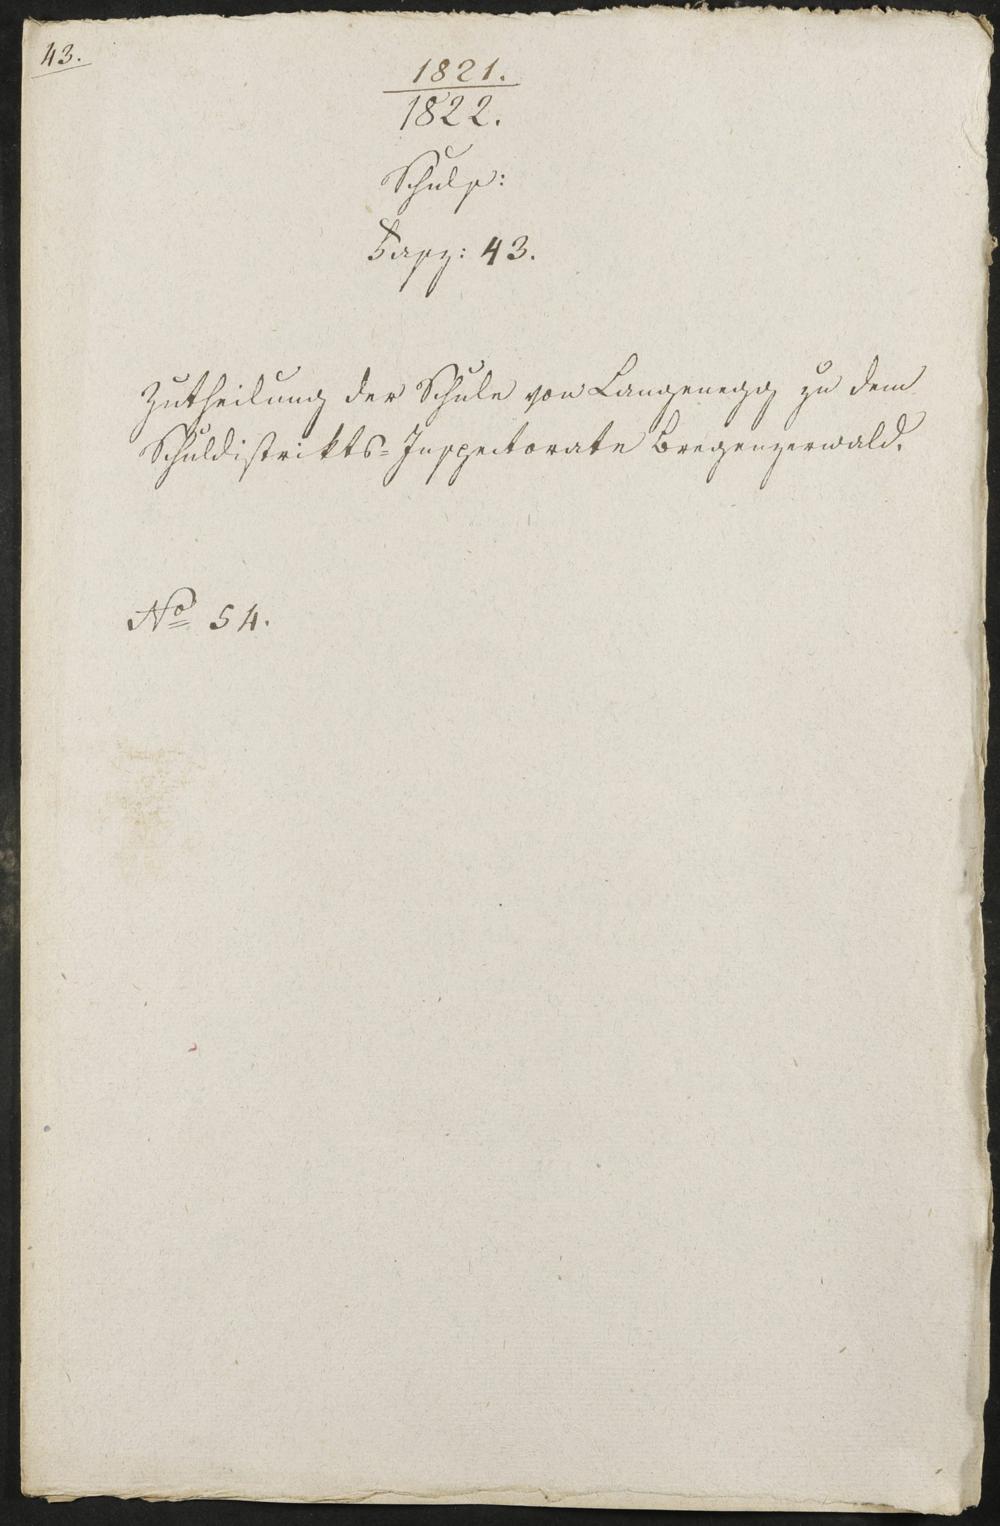 43.
1821.
1822.
Schulf:
Fasz: 43.
Zutheilung der Schule von Langenegg zu dem
Schuldistrikts=Inspectorate Bregenzerwald.
No 54.